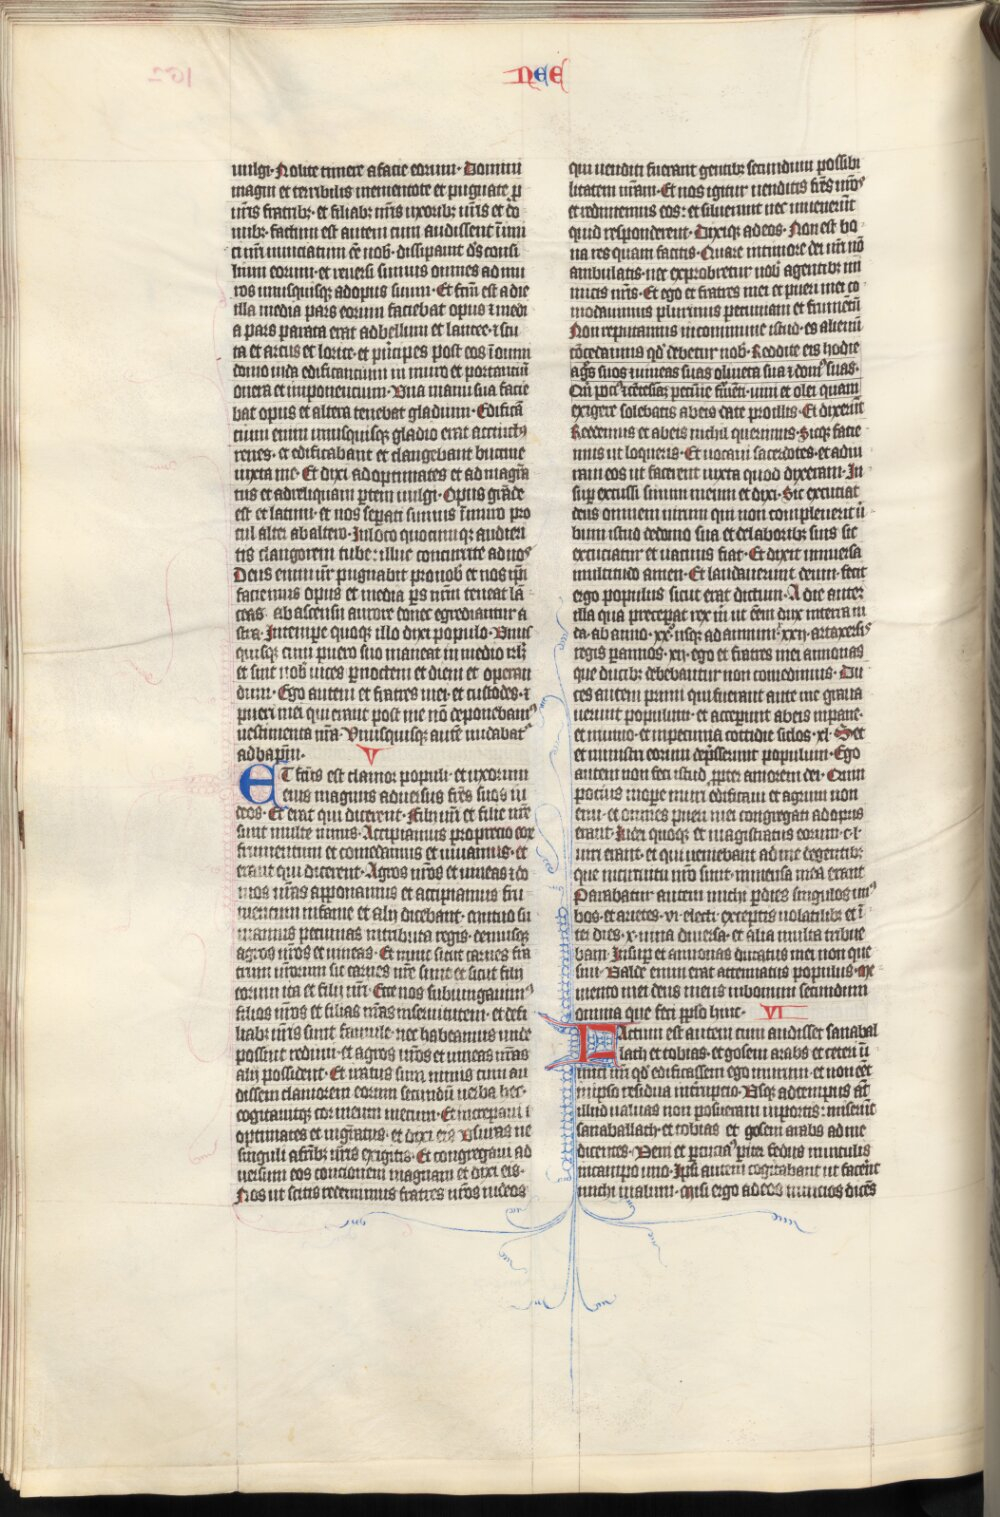 NEE
uulgi· Nolite timere a facie eorum· Domini
magni et terribilis mementote et pugnate ꝑ
ur̃is fratribꝫ· et filiabꝫ ur̃is uxoribꝫ ur̃is et do
mibꝫ· factum est autem cum audissent inimi
ci nr̃i nunciatum ēē nob̵· dissipauit dꝰs consi
lium eorum· et reuersi sumus omnes ad mu
ros unusquisqꝫ ad opus suum· Et fc̃m est a die
illa media pars eorum faciebat opus ⁊ medi
a pars parata erat ad bellum et lancee· ⁊ scu
ta et arcus et lorice· et principes post eos ī omni
domo iuda edificantium in muro et portantiū
onera et imponentium· Una manu sua facie
bat opus et altera tenebat gladium· Edificā
tium enim unusquisqꝫ gladio erat accinctꝰ
renes· et edificabant et clangebant bucine
iuxta me· Et dixi ad optimates et ad magr̃a
tus et ad reliquam ꝑtem uulgi· Opus grāde
est et latum· et nos separati sumus ī muro pro
cul alter ab altero· In loco quocumqꝫ audieri
tis clangorem tube: illuc concurrite ad nos
Deus enim nr̃ pugnabit pro nob̵ et nos ip̄i
faciemus opus et media ꝑs nr̃m teneat lā
ceas· ab ascensu aurore donec egrediantur a
stra· In tempore quoqꝫ illo dixi populo· Unus
quisqꝫ cum puero suo maneat in medio irl̃
et sint nob̵ uices ꝑ noctem et diem et operan
dum· Ego autem et fratres mei· et custodes· ⁊
pueri mei qui erant post me nō deponebamꝰ
uestimenta nr̃a· Unusquisqꝫ autē nudabatᷣ
ad baptm̄·
V
ET factus est clamor populi· et uxorum
eius magnus aduersus fr̃es suos iu
deos· Et erant qui dicerent· Filii nr̃i et filie nr̃e
sunt multe nimis· Accipiamus pro precio eoꝝ
frumentum et comedamus et uiuamus· et
erant qui dicerent· Agros nr̃os et uineas ⁊ do
mos nr̃as apponamus et accipiamus fru
mentum in fame et alij dicebant· mutuo su
mamus pecunias in tributa regis· demusqꝫ
agros nr̃os et uineas· Et nunc sicut carnes fra
trum nr̃orum sic carnes nr̃e sunt et sicut filij
eorum ita et filij nr̃i· Ecce nos subiungauimꝰ
filios nr̃os et filias nr̃as in seruitutem· et de fi
liabꝫ nr̃is sunt famule· nec habeamus unde
possint redimi· et agros nr̃os et uineas nr̃as
alij possident· Et iratus sum nimis cum au
dissem clamorem eorum secundū uerba hec·
cogitauitqꝫ cor meum mecum· Et increpaui ⁊
optimates et mgr̃atus· et dixi eis Usuras ne
singuli a fr̃ibꝫ ur̃is exigitis· Et congregaui ad
uersum eos concionem magnam et dixi eis·
Nos ut scitis redemimus fratres nr̃os iudeos
qui uenditi fuerant gentibꝫ secundum possibi
litatem nr̃am· Et nos igitur uenditis fr̃es ur̃os
et redimemus eos: et siluerunt nec inuenerūt
quid responderent· Dixiqꝫ ad eos· Non est bo
na res quam facitis· Quare in timore dei nr̃i nō
ambulatis· nec exprobretur nob̵ a gentibꝫ ini
micis nr̃is· Et ego et fratres mei et pueri mei co
modauimus plurimis pecuniam et frumētū
Non repetamus in commune istud· es alienū
cōcedamus qd̃ debetur nob̵· Reddite eis hodie
agr̃s suos ⁊ uineas suas oliueta sua ⁊ domꝰ suas·
Qin pociꝰ ⁊ cētesimā pecunie frum̄ti· uini et olei quam
exigere solebatis ab eis date pro illis· Et dixerūt
Reddemus et ab eis nichil queremus· Sicqꝫ facie
mus ut loqueris· Et uocaui sacerdotes· et adiu
raui eos ut facerent iuxta quod dixeram· In
suꝑ excussi sinum meum et dixi· Sic excuciat
deus omnem uirum qui non compleuerit ū
bum istud de domo sua et de laboribꝫ suis sic
excuciatur et uacuus fiat· Et dixit uniuersa
multitudo amen· Et laudauerunt deum· fecit
ergo populus sicut erat dictum· A die autē
illa qua preceperat rex m̄ ut eēm dux in terra iu
da· ab anno· xxᵒ usqꝫ ad annum xxxij artaxersis
regis ꝑ annos· xij· ego et fratres mei annonas
que ducibꝫ debebantur non comedimus· Du
ces autem primi qui fuerant ante me graua
uerunt populum· et acceperunt ab eis in pane·
et in uino· et in pecunia cottidie siclos· xl· Set
et ministri eorum depresserunt populum· Ego
autem non feci istud ꝓpter amorem dei· Quin
pocius in opere muri edificaui et agrum non
emi· et omnes pueri mei congregati ad opus
erant· Iudei quoqꝫ et magistratus eorum· c· l·
uiri erant· et qui ueniebant ad me de gentibꝫ
que in circuitu nr̃o sunt· in mensa mea erant
Parabatur autem michi ꝑ dies singulos unꝰ
bos· et arietes· vi· electi· exceptis uolatilibꝫ et ī
ter dies· x· uina diuersa· et alia multa tribue
bam· Insuꝑ et annonas ducatus mei non que
siui· Valde enim erat attenuatus populus· Me
mento mei deus meus in bonum secundum
omnia que feci ꝓpo huic·
VI
Factum est autem cum audisset sanabal
lath et tobias· et gosem arabs et ceteri ī
imici nr̃i qd̃ edificassem ego murum· et non eēt
in ipso residua interruptio· Usqꝫ ad tempus aūt
illud ualuas non posueram in portis: miserūt
sanaballath· et tobias et gosem arabs ad me
dicentes· Veni et ꝑcuciamꝰ pariter fedus in uiculis
in campo uno· Ipsi autem cogitabant ut facerēt
michi malum· Misi ergo ad eos nuncios dicēs